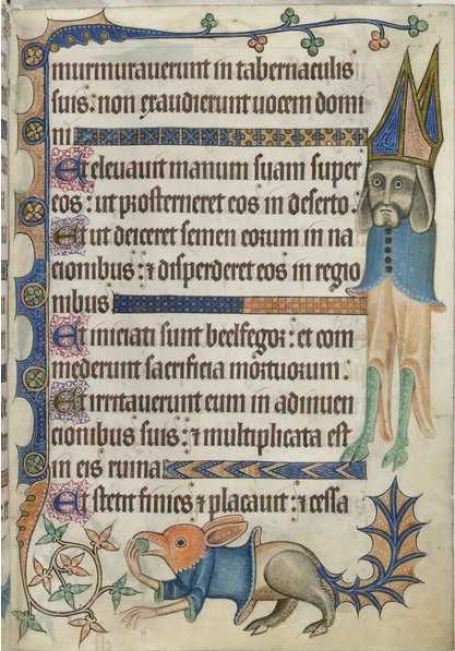 murmurauerunt in tabernaculis
suis: non exaudierunt uocem domi
ni
Et eleuauit manum suam super
eos: ut prosterneret eos in deserto.
Et ut deiceret semen eorum in na
cionibus: ⁊ disperderet eos in regio
nibus.
Et iniciati sunt beelfegor: et com
mederunt sacrificia mortuorum.
Et irritauerunt eum in adinuen
cionibus suis: ⁊ multiplicata est
in eis ruina
Et stetit finies ⁊ placauit: ⁊ cessa